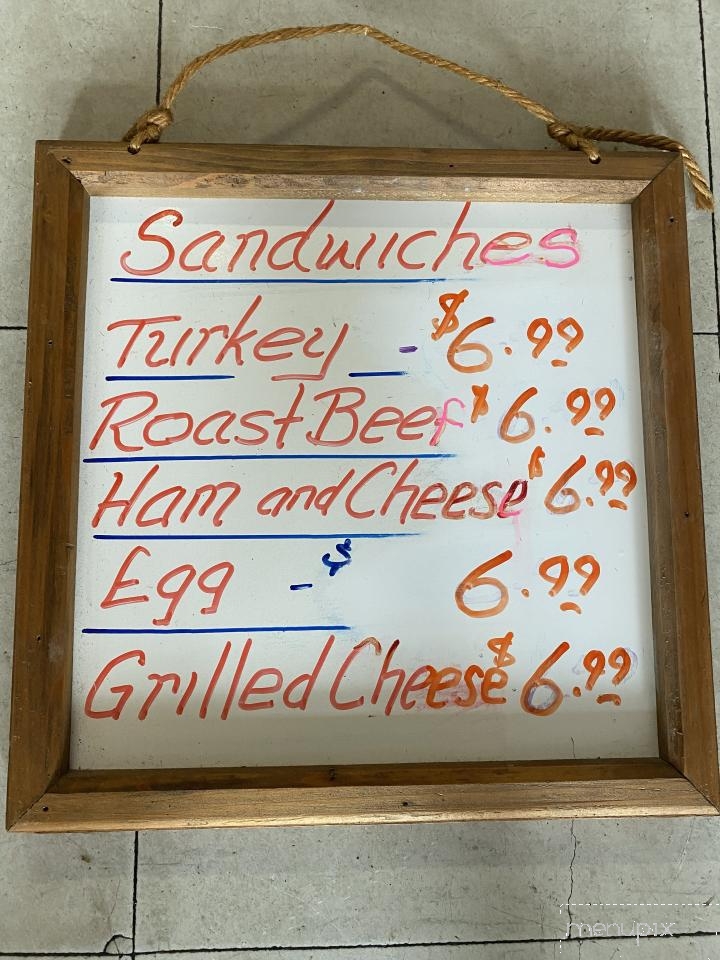 Sandwiches
Turkey - $6.99
Roast Beef $6.99
Ham and Cheese $6.99
Egg - $ 6.99
Grilled Cheese $6.99
menupix